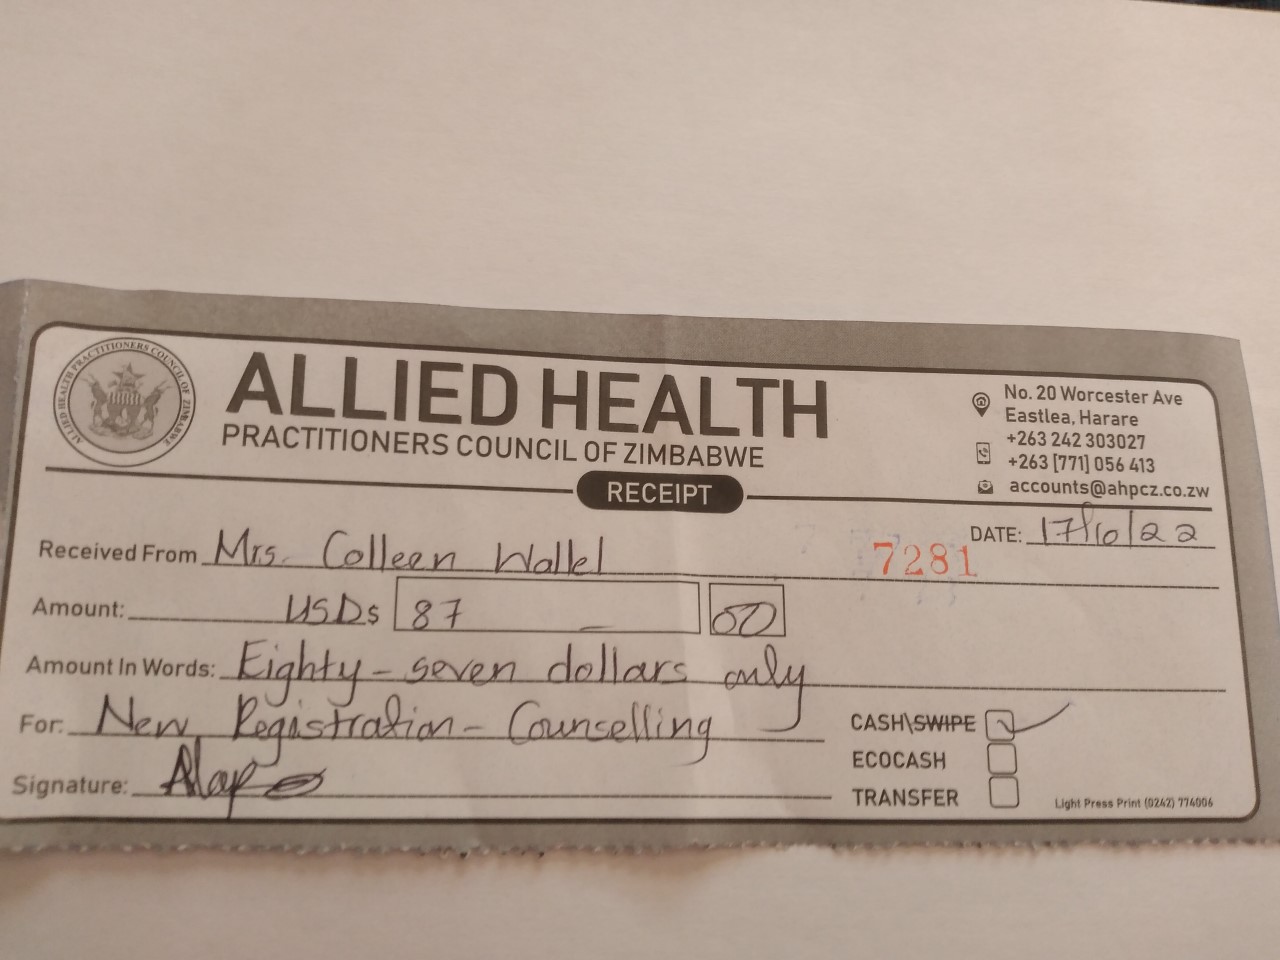 ALLIED HEALTH PRACTITIONERS COUNCIL OF ZIMBABWE
ALLIED HEALTH
PRACTITIONERS COUNCIL OF ZIMBABWE
No. 20 Worcester Ave
Eastlea, Harare
+263 242 303027
+263 [771] 056 413
accounts@ahpcz.co.zw
RECEIPT
DATE: 17/10/22
Received From Mrs. Colleen Wallel 7281
Amount: USD$ 87 — 00
Amount In Words: Eighty-seven dollars only
For: New Registration - Counselling
CASH\SWIPE
ECOCASH
Signature:
TRANSFER
Light Press Print (0242) 774006